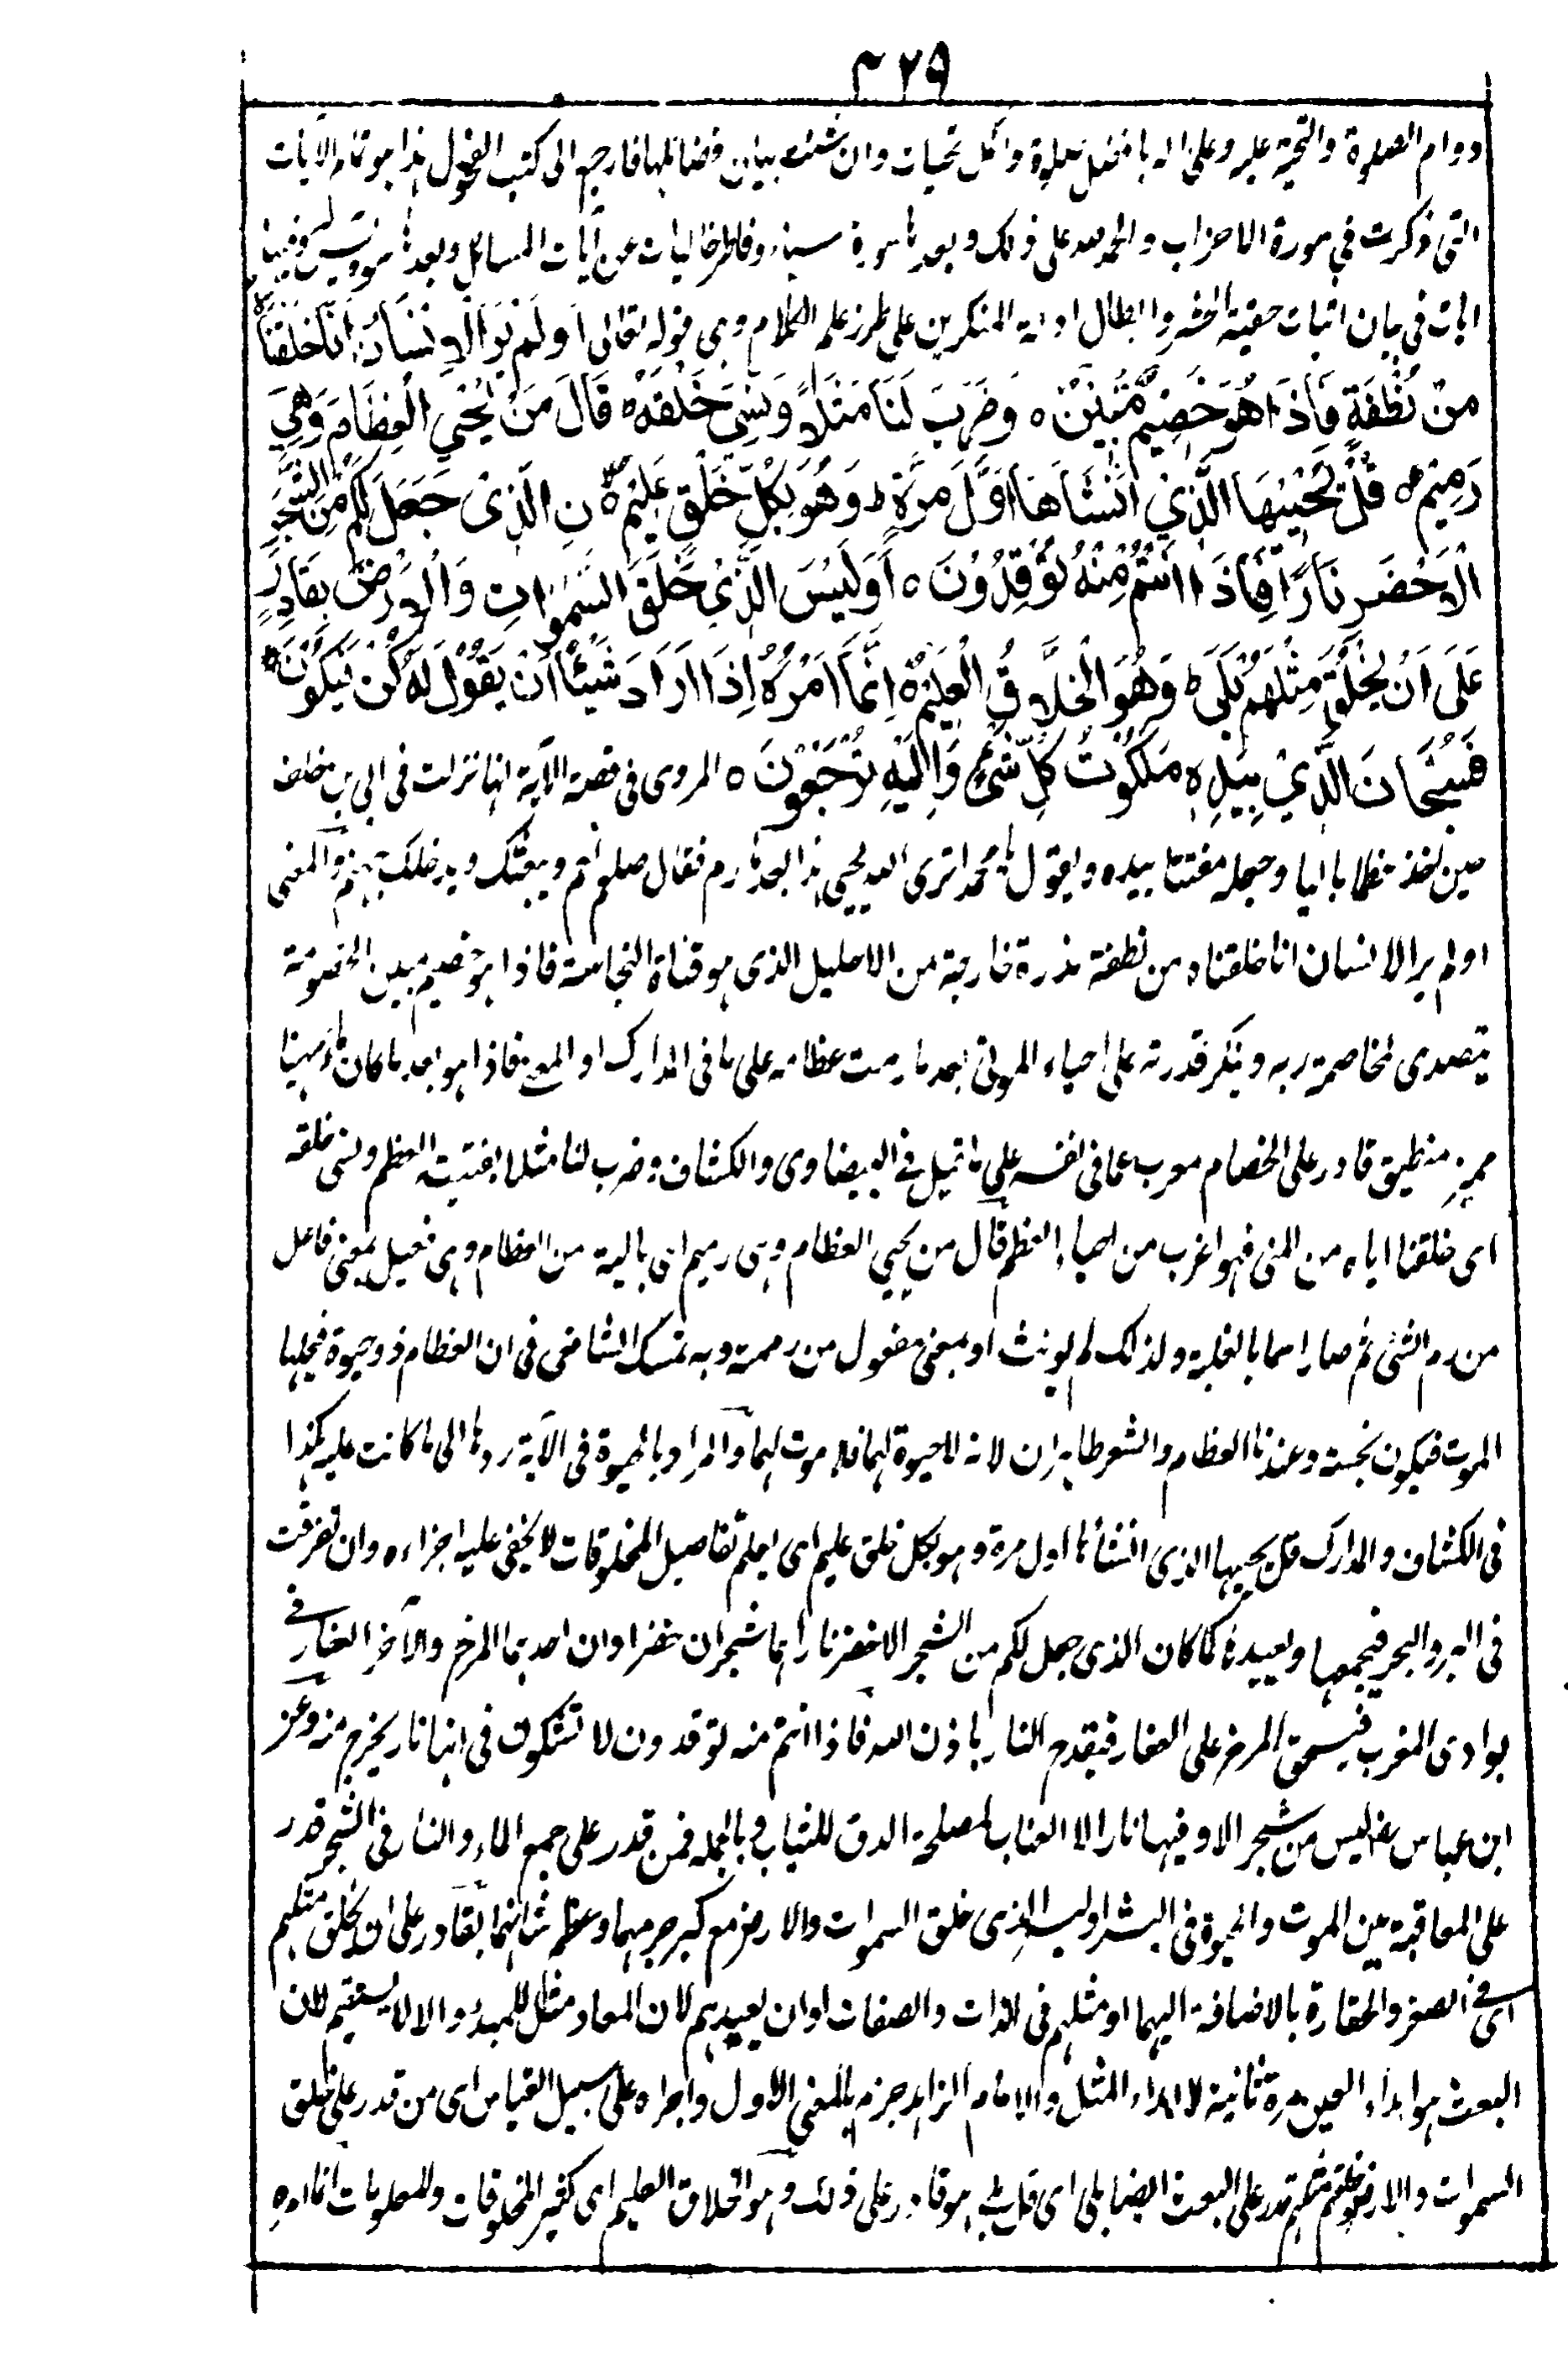 ٤٢٩
دوام الصلوة والتحية عليه وعلى اله بافضل صلوة واكمل تحيات وان شئت بيان فضائلها فارجع الى كتب الفحول هذا هو تمام الايات
التى ذكرت في سورة الاحزاب والحمد لله على ذلك وبعدها سورة سبا وفاطر خاليات عن آيات المسائل وبعدها سورة يس وفيها
ايات في بيان اثبات حقية الحشر وابطال ادلة المنكرين على طرز علم الكلام وهى قوله تعالى اَوَلَمْ يَرَ الْاِنْسَانُ اَنَّا خَلَقْنَاهُ
مِنْ نُّطْفَةٍ فَاِذَا هُوَ خَصِيْمٌ مُّبِيْنٌ ه وَضَرَبَ لَنَا مَثَلًا وَّنَسِيَ خَلْقَهٗ قَالَ مَنْ يُّحْيِ الْعِظَامَ وَهِيَ
رَمِيْمٌ ه قُلْ يُحْيِيْهَا الَّذِيْ اَنْشَاَهَا اَوَّلَ مَرَّةٍ ط وَهُوَ بِكُلِّ خَلْقٍ عَلِيْمٌ ه نِ الَّذِيْ جَعَلَ لَكُمْ مِّنَ الشَّجَرِ
الْاَخْضَرِ نَارًا فَاِذَا اَنْتُمْ مِّنْهُ تُوْقِدُوْنَ ه اَوَلَيْسَ الَّذِيْ خَلَقَ السَّمٰوَاتِ وَالْاَرْضَ بِقَادِرٍ
عَلٰى اَنْ يَّخْلُقَ مِثْلَهُمْ بَلٰى ط وَهُوَ الْخَلَّاقُ الْعَلِيْمُ ه اِنَّمَا اَمْرُهٗ اِذَا اَرَادَ شَيْئًا اَنْ يَّقُوْلَ لَهٗ كُنْ فَيَكُوْنُ ه
فَسُبْحَانَ الَّذِيْ بِيَدِهٖ مَلَكُوْتُ كُلِّ شَيْءٍ وَّاِلَيْهِ تُرْجَعُوْنَ ه المروى في قصة الاية انها نزلت في ابي بن خلف
حين اخذ عظما باليا وجعله مفتتا بيده ويقول يا محمد اترى الله يحيى هذا بعد ما رم فقال صلعم نعم ويبعثك ويدخلك جهنم والمعنى
اولم ير الانسان انا خلقناه من نطفة مذرة خارجة من الاحليل الذى هو قناة النجاسة فاذا هو خصيم مبين الخصومة
يتصدى لمخاصمة ربه وينكر قدرته على احياء الموتى بعد ما رمت عظامه على ما في المدارك او المعنى فاذا هو بعد ما كان ماء مهينا
مميز منطيق قادر على الخصام معرب عما في نفسه على ما قيل في البيضاوى والكشاف وضرب لنا مثلا بفتيت العظم ونسى خلقه
اى خلقنا اياه من المنى فهو اغرب من احياء العظم قال من يحيى العظام وهى رميم اى بالية من العظام وهى فعيل بمعنى فاعل
من رم الشئ ثم صار اسما بالغلبة ولذلك لم يونث او بمعنى مفعول من رممته وبه تمسك الشافعى فى ان العظام ذو حيوة فيحلها
الموت فيكون نجسة وعندنا العظام والشعر طاهران لانه لا حيوة لهما فلا موت لهما والمراد بالحيوة فى الآية ردها الى ما كانت عليه هكذا
فى الكشاف والمدارك قل يحييها الذى انشأها اول مرة وهو بكل خلق عليم اى يعلم تفاصيل المخلوقات لا يخفى عليه اجزاءه وان تفرقت
فى البر والبحر فيجمعها ويعيدها كما كان الذى جعل لكم من الشجر الاخضر نارا هما شجران خضراوان احدهما المرخ والآخر العفار فى
بوادى المغرب فيسحق المرخ على العفار فينقدح النار باذن الله فاذا انتم منه توقدون لا تشكون فى انها نار يخرج منه وعن
ابن عباس رض ليس من شجر الا وفيها نار الا العناب لمصلحة الدق للثياب وبالجملة فمن قدر على جمع الماء والنار فى الشجر قدر
على المعاقبة بين الموت والحيوة فى البشر اوليس الذى خلق السموات والارض مع كبر جرمهما وعظم شانهما بقادر على ان يخلق مثلهم
اى فى الصغر والحقارة بالاضافة اليهما او مثلهم فى الذات والصفات او ان يعيدهم لان المعاد مثل للمبدء والا لا يستقيم لان
البعث هو ابداء العين مرة ثانية لا ابداء المثل والامام الزاهد جزم بالمعنى الاول واجراه على سبيل القياس اى من قدر على خلق
السموات والارض وخلقتم مثلهم قدر على البعث ايضا بلى اى قل بلى هو قادر على ذلك وهو الخلاق العليم اى كثير المخلوقات والمعلومات انما امره